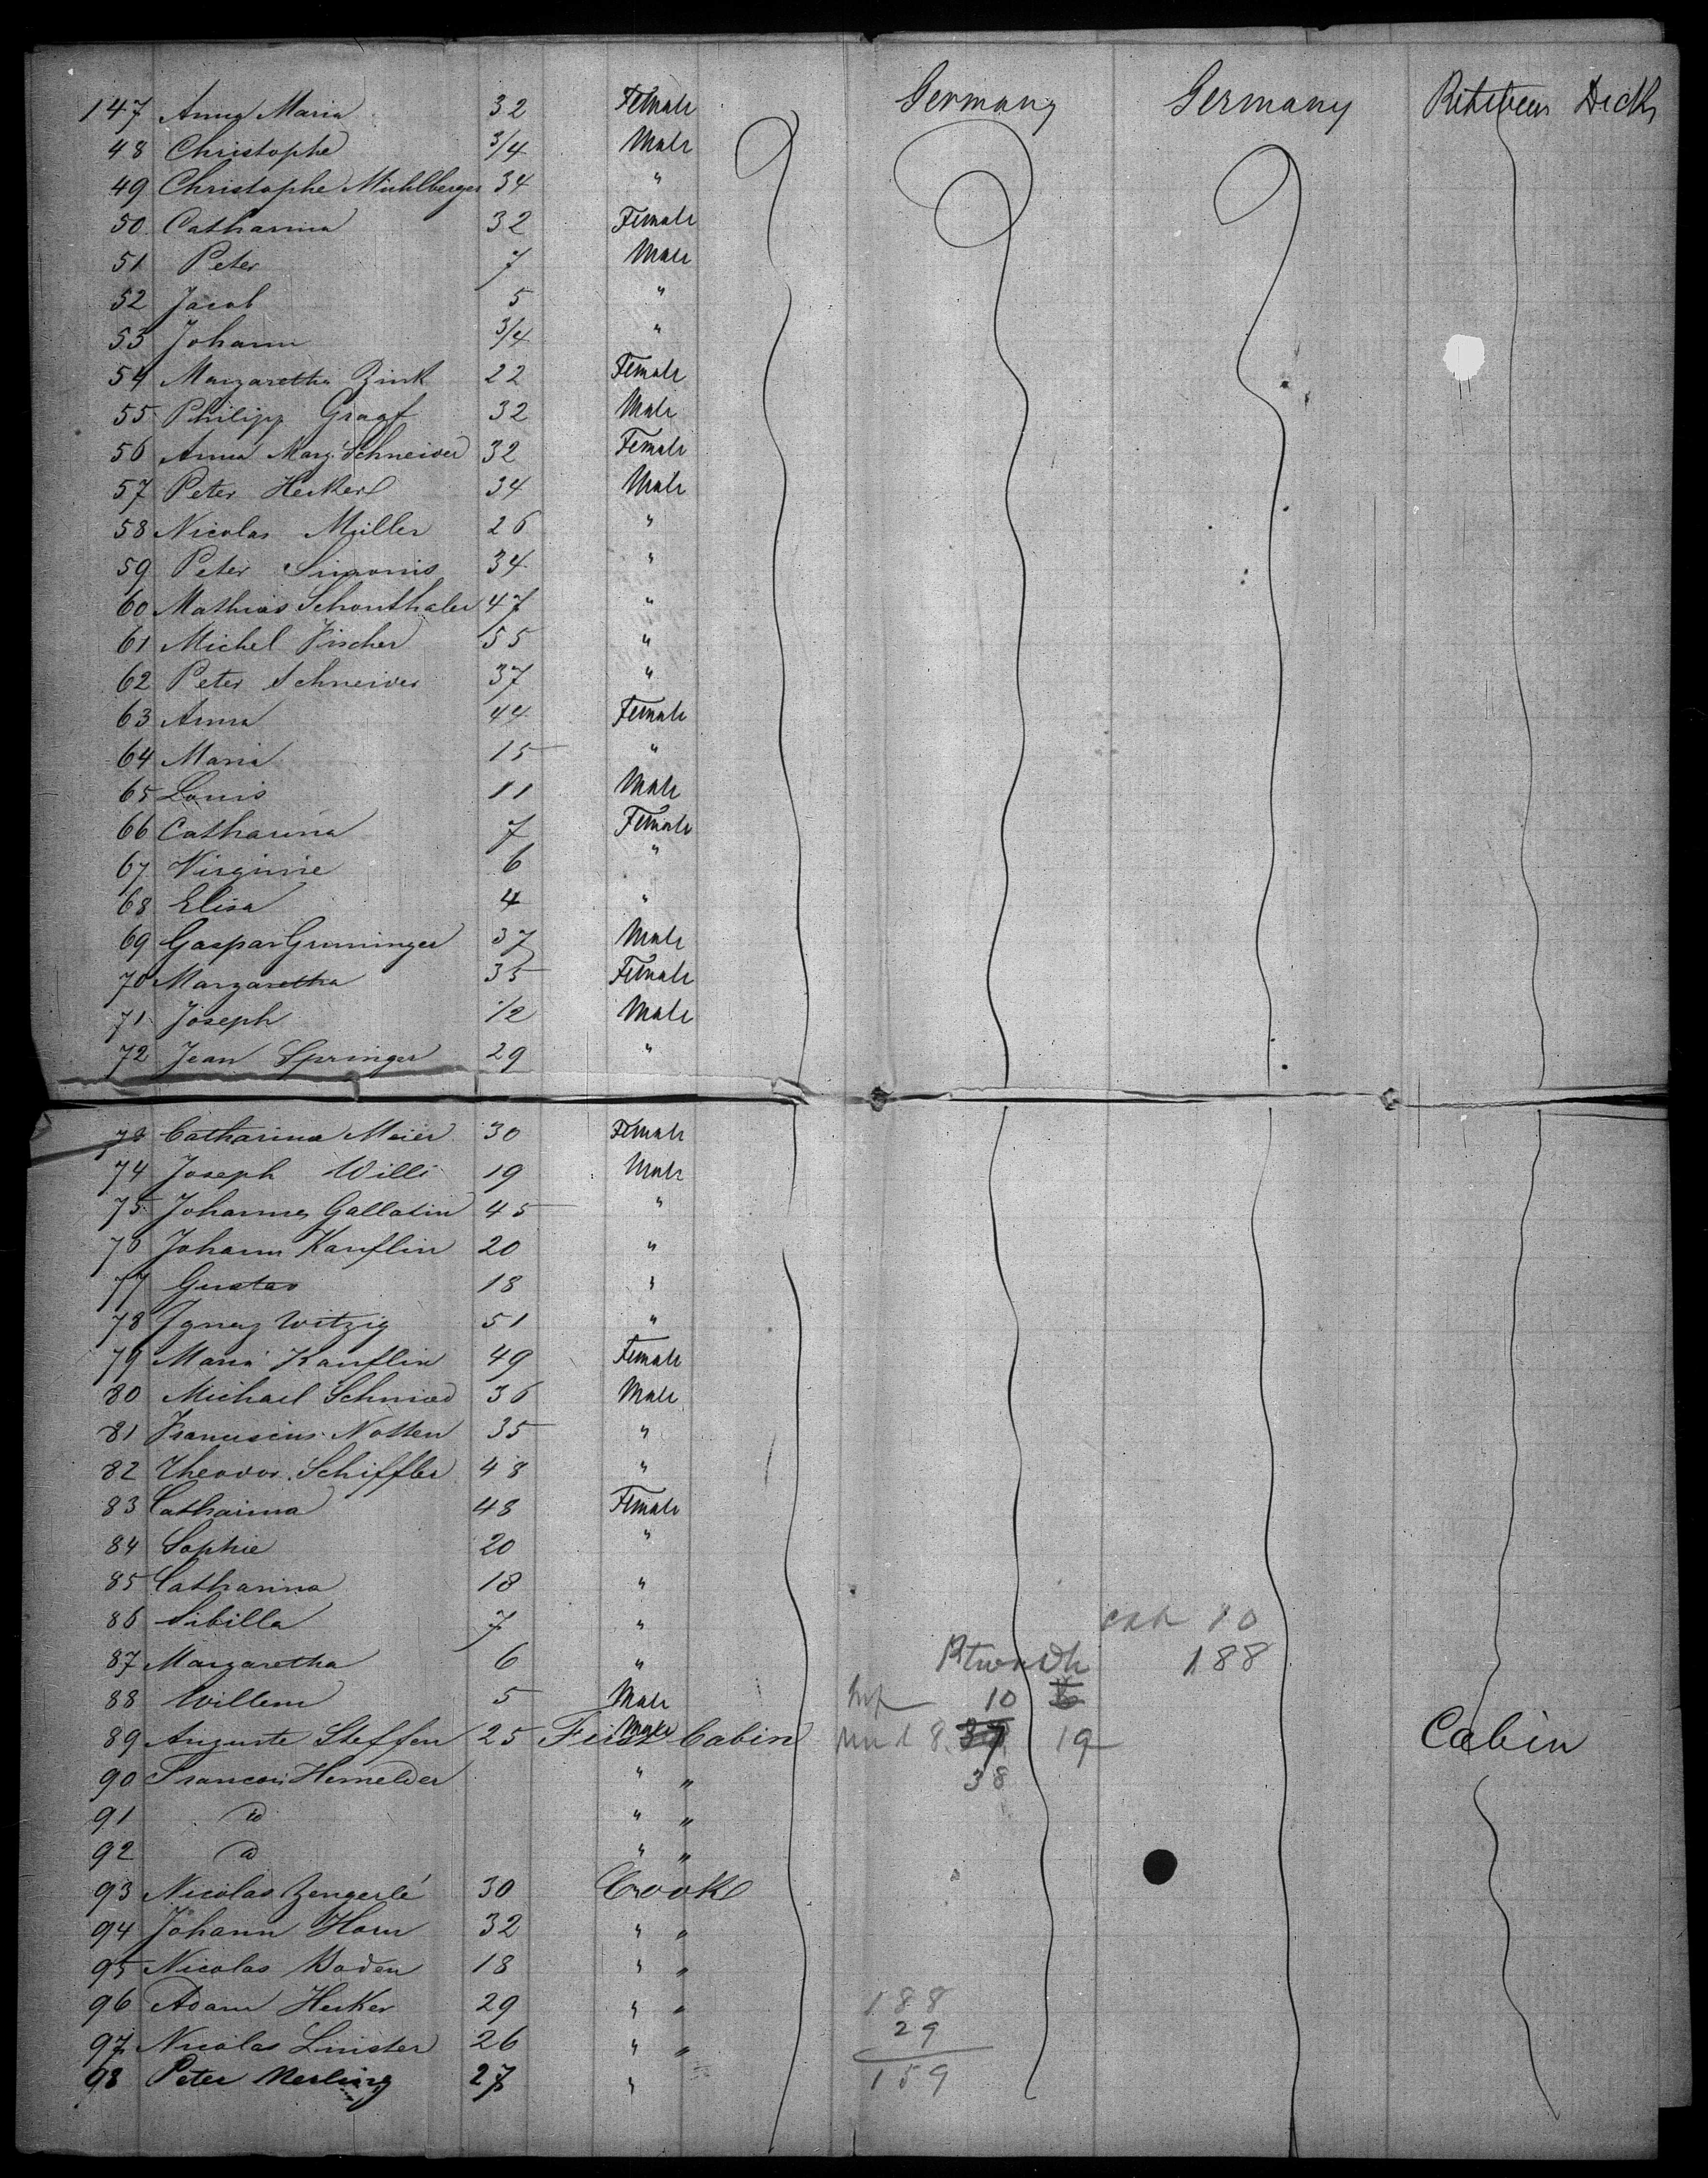 147 Anna Maria 32 Female Germany Germany Between Decks
48 Christophe 3/4 Male
49 Christophe Muhlberger 34 "
50 Catharina 32 Female
51 Peter 7 Male
52 Jacob 5 "
53 Johann 3/4 "
54 Margaretha Zink 22 Female
55 Philipp Graaf 32 Male
56 Anna Marg. Schneider 32 Female
57 Peter Herkerl 34 Male
58 Nicolas Müller 26 "
59 Peter Simonis 34 "
60 Mathias Schonthaler 47 "
61 Michel Fischer 55 "
62 Peter Schneider 37 "
63 Anna 44 Female
64 Maria 15 "
65 Louis 11 Male
66 Catharina 7 Female
67 Virginie 6 "
68 Elisa 4 "
69 Gaspar Gruninger 37 Male
70 Margaretha 35 Female
71 Joseph 1/2 Male
72 Jean Springer 29 "
73 Catharina Meier 30 Female
74 Joseph Willi 19 Male
75 Johannes Gallatin 45 "
76 Johann Kauflin 20 "
77 Gustav 18 "
78 Ignaz Witzig 51 "
79 Maria Kauflin 49 Female
80 Michael Schmied 36 Male
81 Franciscus Notten 35 "
82 Theodor Schiffler 48 "
83 Catharina 48 Female
84 Sophie 20 "
85 Catharina 18 "
86 Sibilla 7 " cab 10
87 Margaretha 6 " Btwn Dk 188
88 Willem 5 Male Inf 10 6
89 Auguste Steffen 25 Male First Cabin und 8. 37 19 Cabin
90 Francois Hemelder " " 38
91 do " "
92 do " "
93 Nicolas Zengerlé 30 Crooke
94 Johann Horn 32 " "
95 Nicolas Boden 18 " "
96 Adam Herker 29 " " 188
29
97 Nicolas Linster 26 " "
98 Peter Merling 27 " 159